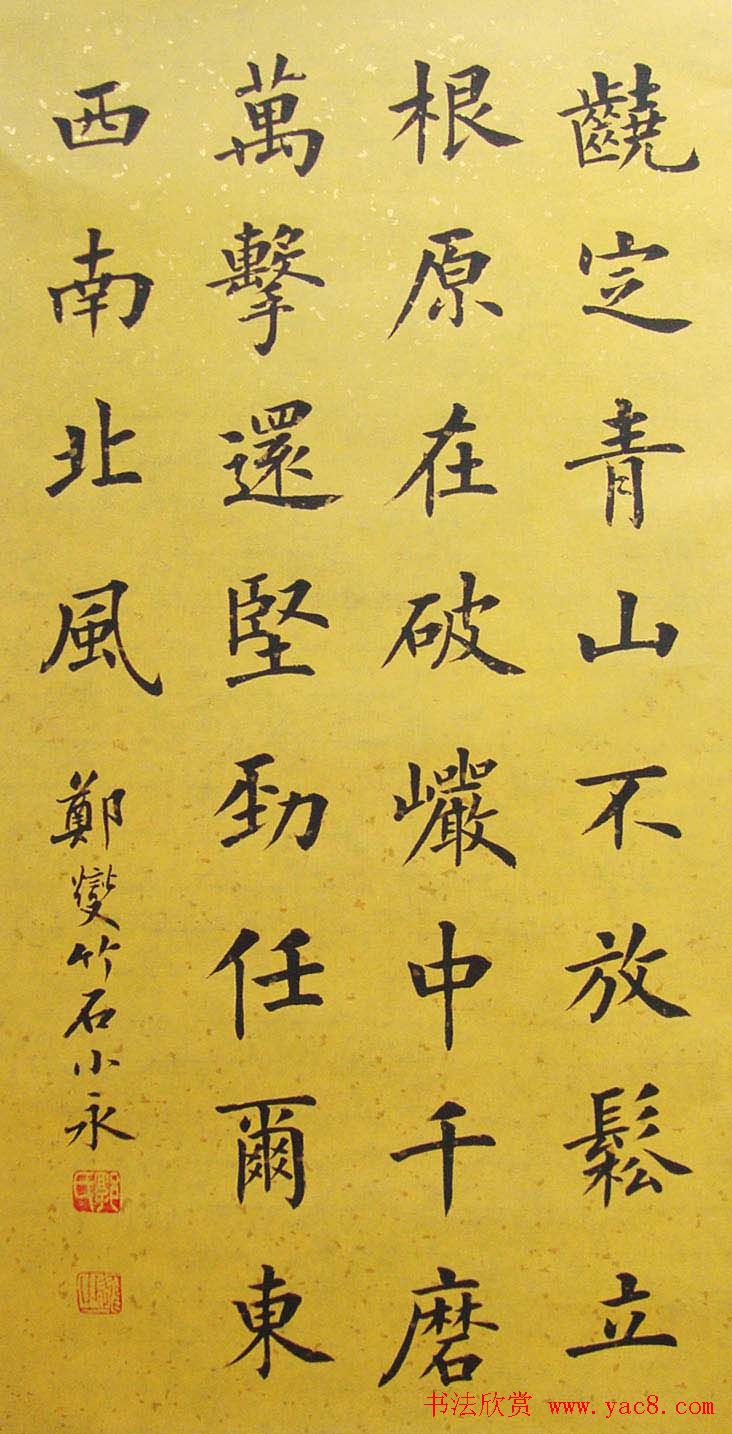 定青山不放鬆立
根原在破巖中千磨
萬擊還堅勁任爾東
西南北風
鄭燮竹石小永
书法欣赏 www.yac8.com